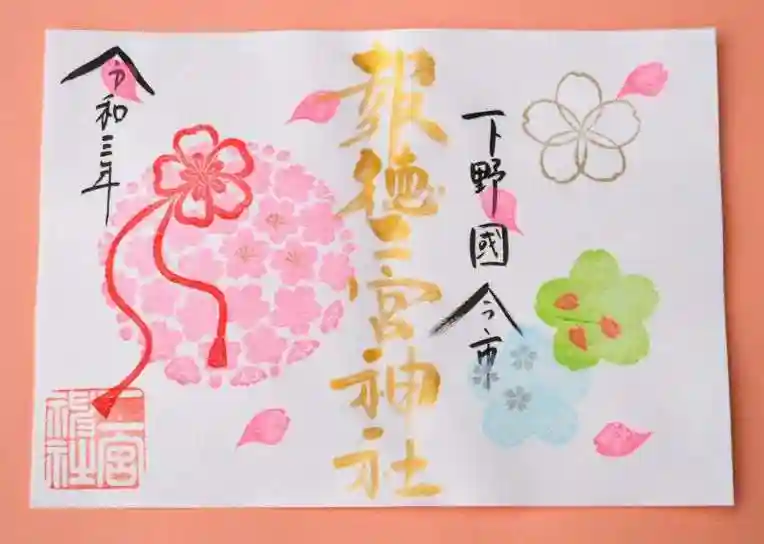 下野國今市
報徳二宮神社
令和三年
二宮神社